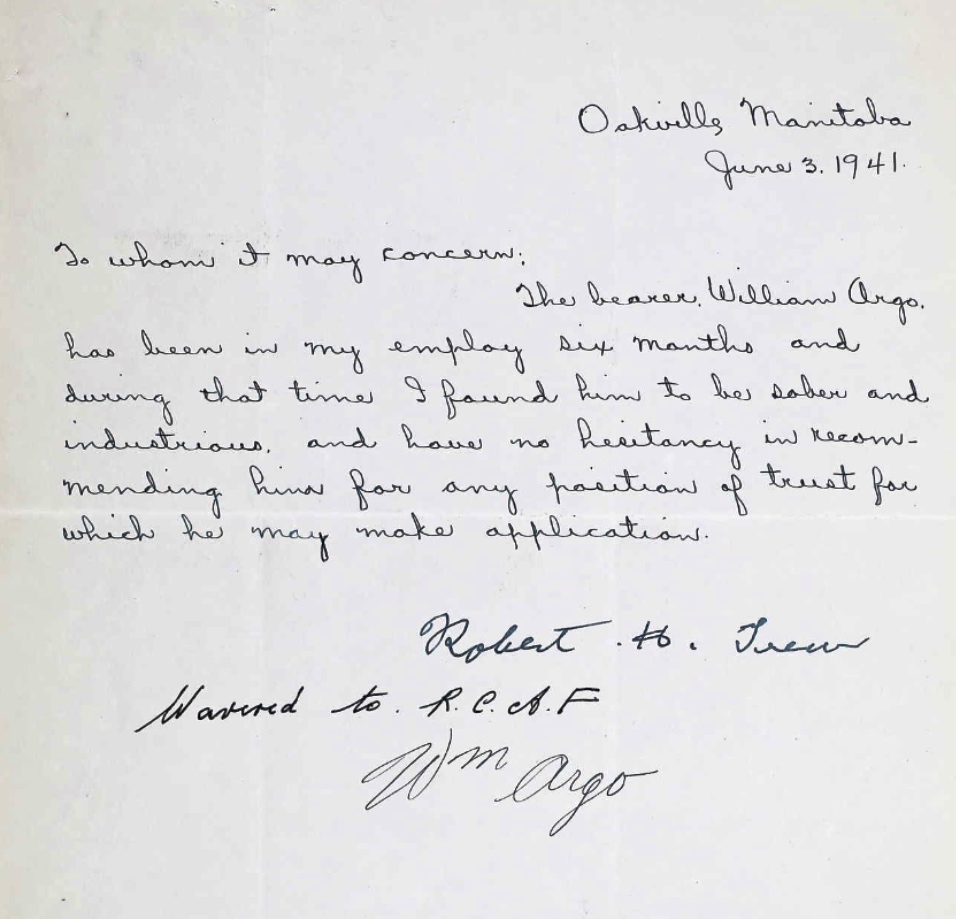 Oakville, Manitoba
June 3. 1941.
To whom it may concern:
The bearer, William Argo,
has been in my employ six months and
during that time I found him to be sober and
industrious, and have no hesitancy in recom-
mending him for any position of trust for
which he may make application.
Robert H. Trew
Wavered to. R.C.A.F
Wm Argo